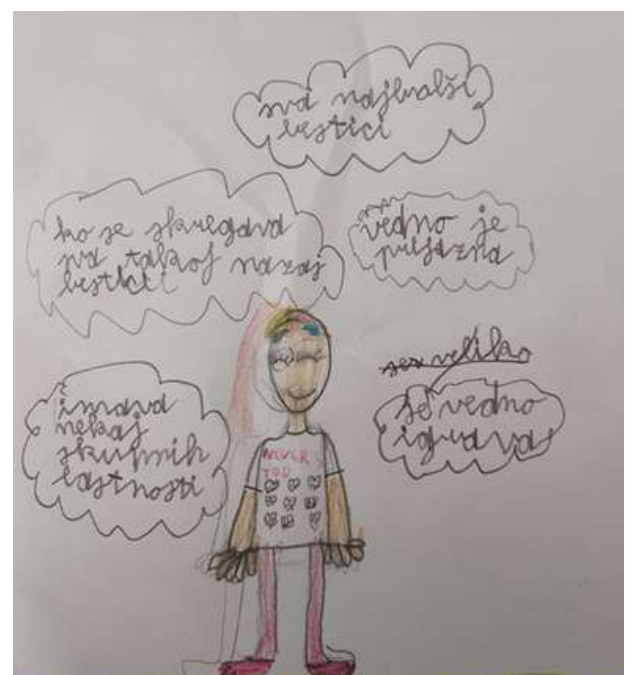 sva najboljši
bestici
ko se skregava
sva takoj nazaj
bestici
vedno je
prijazna
imava
nekaj
skupnih
lastnosti
se vedno
igrava
NEVER